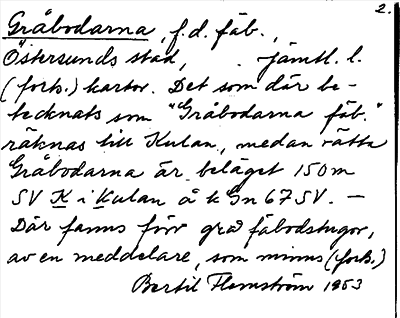 2.
Gråbodarna, f.d. fäb.,
Östersunds stad, Jämtl. l.
(forts.) kartor. Det som där be-
tecknats som "Gråbodarna fäb."
räknas till Kulan, medan rätta
Gråbodarna är beläget 150 m
SV K i Kulan å k Sn 67 SV. —
Där fanns förr grå fäbodstugor,
av en meddelare, som minns (forts.)
Bertil Flemström 1953